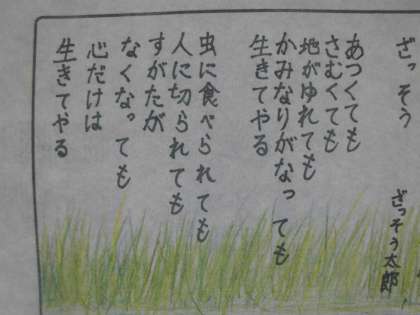 ざっそう
ざっそう太郎
あつくても
さむくても
地がゆれても
かみなりがなっても
生きてやる
虫に食べられても
人に切られても
すがたが
なくなっても
心だけは
生きてやる